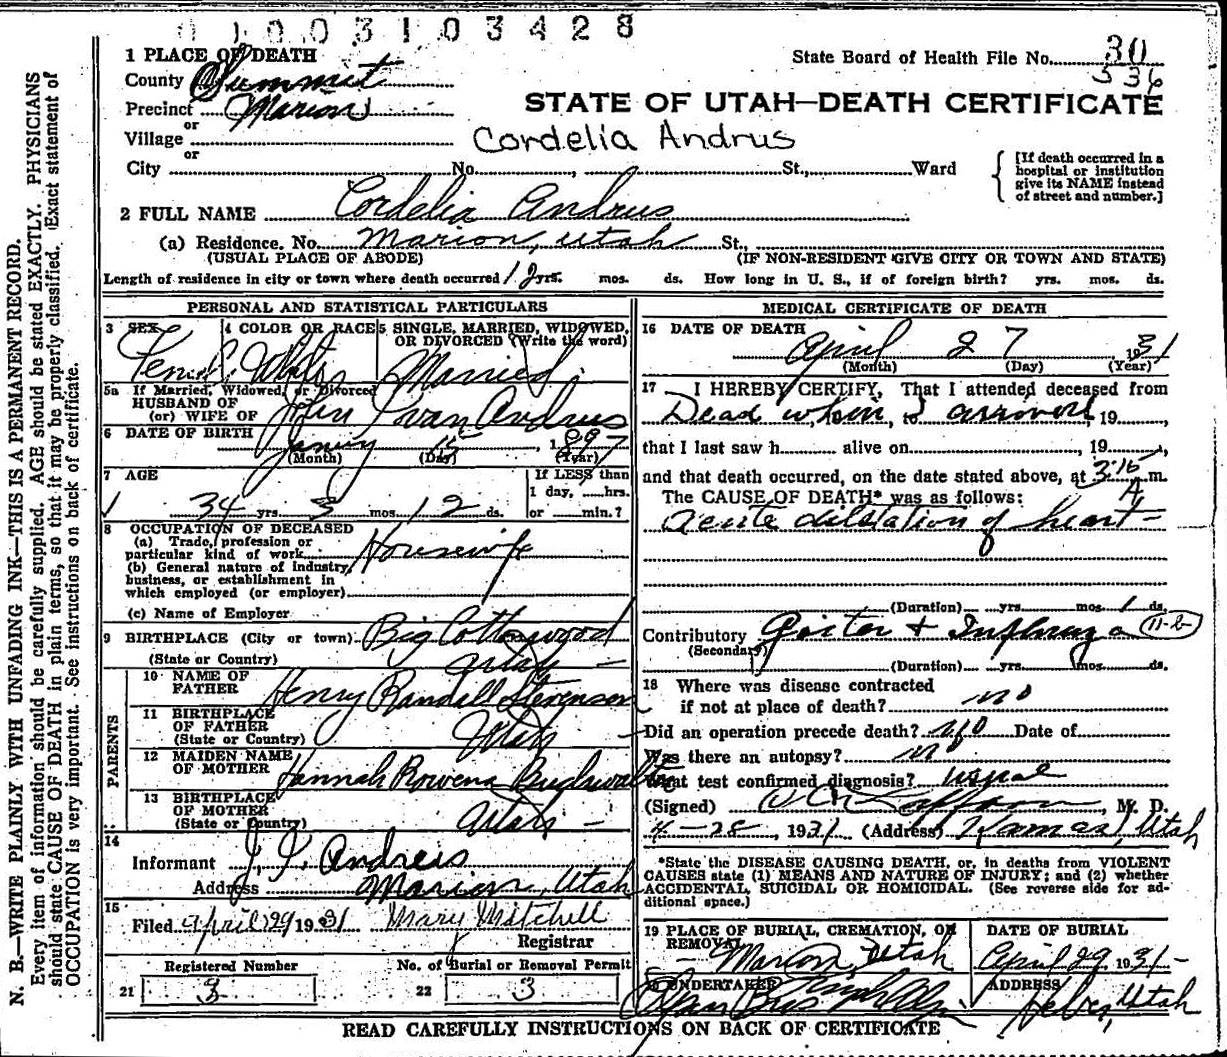 0 1 0 0 3 1 0 3 4 2 8
1 PLACE OF DEATH
State Board of Health File No. 30
536
County Summit
Precinct Marion
STATE OF UTAH—DEATH CERTIFICATE
or
Village
Cordelia Andrus
or
City No. , St., Ward
[If death occurred in a hospital or institution give its NAME instead of street and number.]
2 FULL NAME Cordelia Andrus
(a) Residence. No. Marion, Utah St.,
(USUAL PLACE OF ABODE) (IF NON-RESIDENT GIVE CITY OR TOWN AND STATE)
Length of residence in city or town where death occurred 12 yrs. mos. ds. How long in U. S., if of foreign birth? yrs. mos. ds.
PERSONAL AND STATISTICAL PARTICULARS
3 SEX
4 COLOR OR RACE
5 SINGLE, MARRIED, WIDOWED, OR DIVORCED (Write the word)
Married
5a If Married, Widowed, or Divorced
HUSBAND OF
(or) WIFE OF John Ivan Andrus
6 DATE OF BIRTH
15 1897
(Month) (Day) (Year)
7 AGE
If LESS than
1 day, hrs.
34 yrs. 3 mos. 12 ds. or min.?
8 OCCUPATION OF DECEASED
(a) Trade, profession or
particular kind of work Housewife
(b) General nature of industry,
business, or establishment in
which employed (or employer)
(c) Name of Employer
9 BIRTHPLACE (City or town) Big Cottonwood
(State or Country) Utah
PARENTS
10 NAME OF FATHER Henry Randall Stevenson
11 BIRTHPLACE OF FATHER
(State or Country) Utah
12 MAIDEN NAME OF MOTHER Hannah Rowena
13 BIRTHPLACE OF MOTHER
(State or Country) Utah
14
Informant J. I. Andrus
Address Marion, Utah
15
Filed April 29 1931 Mary Mitchell
Registrar
Registered Number
No. of Burial or Removal Permit
21 3
22 3
MEDICAL CERTIFICATE OF DEATH
16 DATE OF DEATH
April 27 1931
(Month) (Day) (Year)
17 I HEREBY CERTIFY, That I attended deceased from
Dead when I arrived, 19
that I last saw h alive on , 19
and that death occurred, on the date stated above, at 3:15 A m.
The CAUSE OF DEATH* was as follows:
Acute dilatation of heart
(Duration) yrs. mos. 1 ds.
Contributory Goiter + Influenza 11-b
(Secondary)
(Duration) yrs. mos. ds.
18 Where was disease contracted
if not at place of death? no
Did an operation precede death? no Date of
Was there an autopsy? no
What test confirmed diagnosis? usual
(Signed) , M. D.
4-28, 1931 (Address) Kamas, Utah
*State the DISEASE CAUSING DEATH, or, in deaths from VIOLENT
CAUSES state (1) MEANS AND NATURE OF INJURY; and (2) whether
ACCIDENTAL, SUICIDAL OR HOMICIDAL. (See reverse side for ad-
ditional space.)
19 PLACE OF BURIAL, CREMATION, OR REMOVAL
Marion Utah
DATE OF BURIAL
April 29 1931
20 UNDERTAKER
ADDRESS
Heber, Utah
READ CAREFULLY INSTRUCTIONS ON BACK OF CERTIFICATE
N. B.—WRITE PLAINLY WITH UNFADING INK—THIS IS A PERMANENT RECORD.
Every item of information should be carefully supplied. AGE should be stated EXACTLY. PHYSICIANS
should state CAUSE OF DEATH in plain terms, so that it may be properly classified. Exact statement of
OCCUPATION is very important. See instructions on back of certificate.